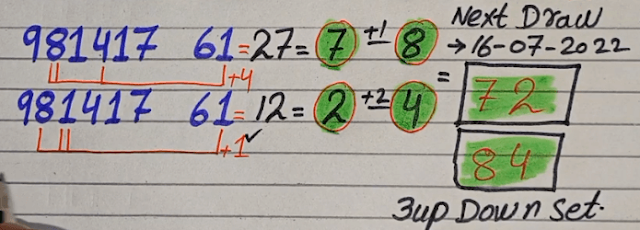 Next Draw
981417 61=27=7 +1 8 →16-07-2022
+4
= 72
981417 61=12=2 +2 4
+1✓
84
3up Down Set.